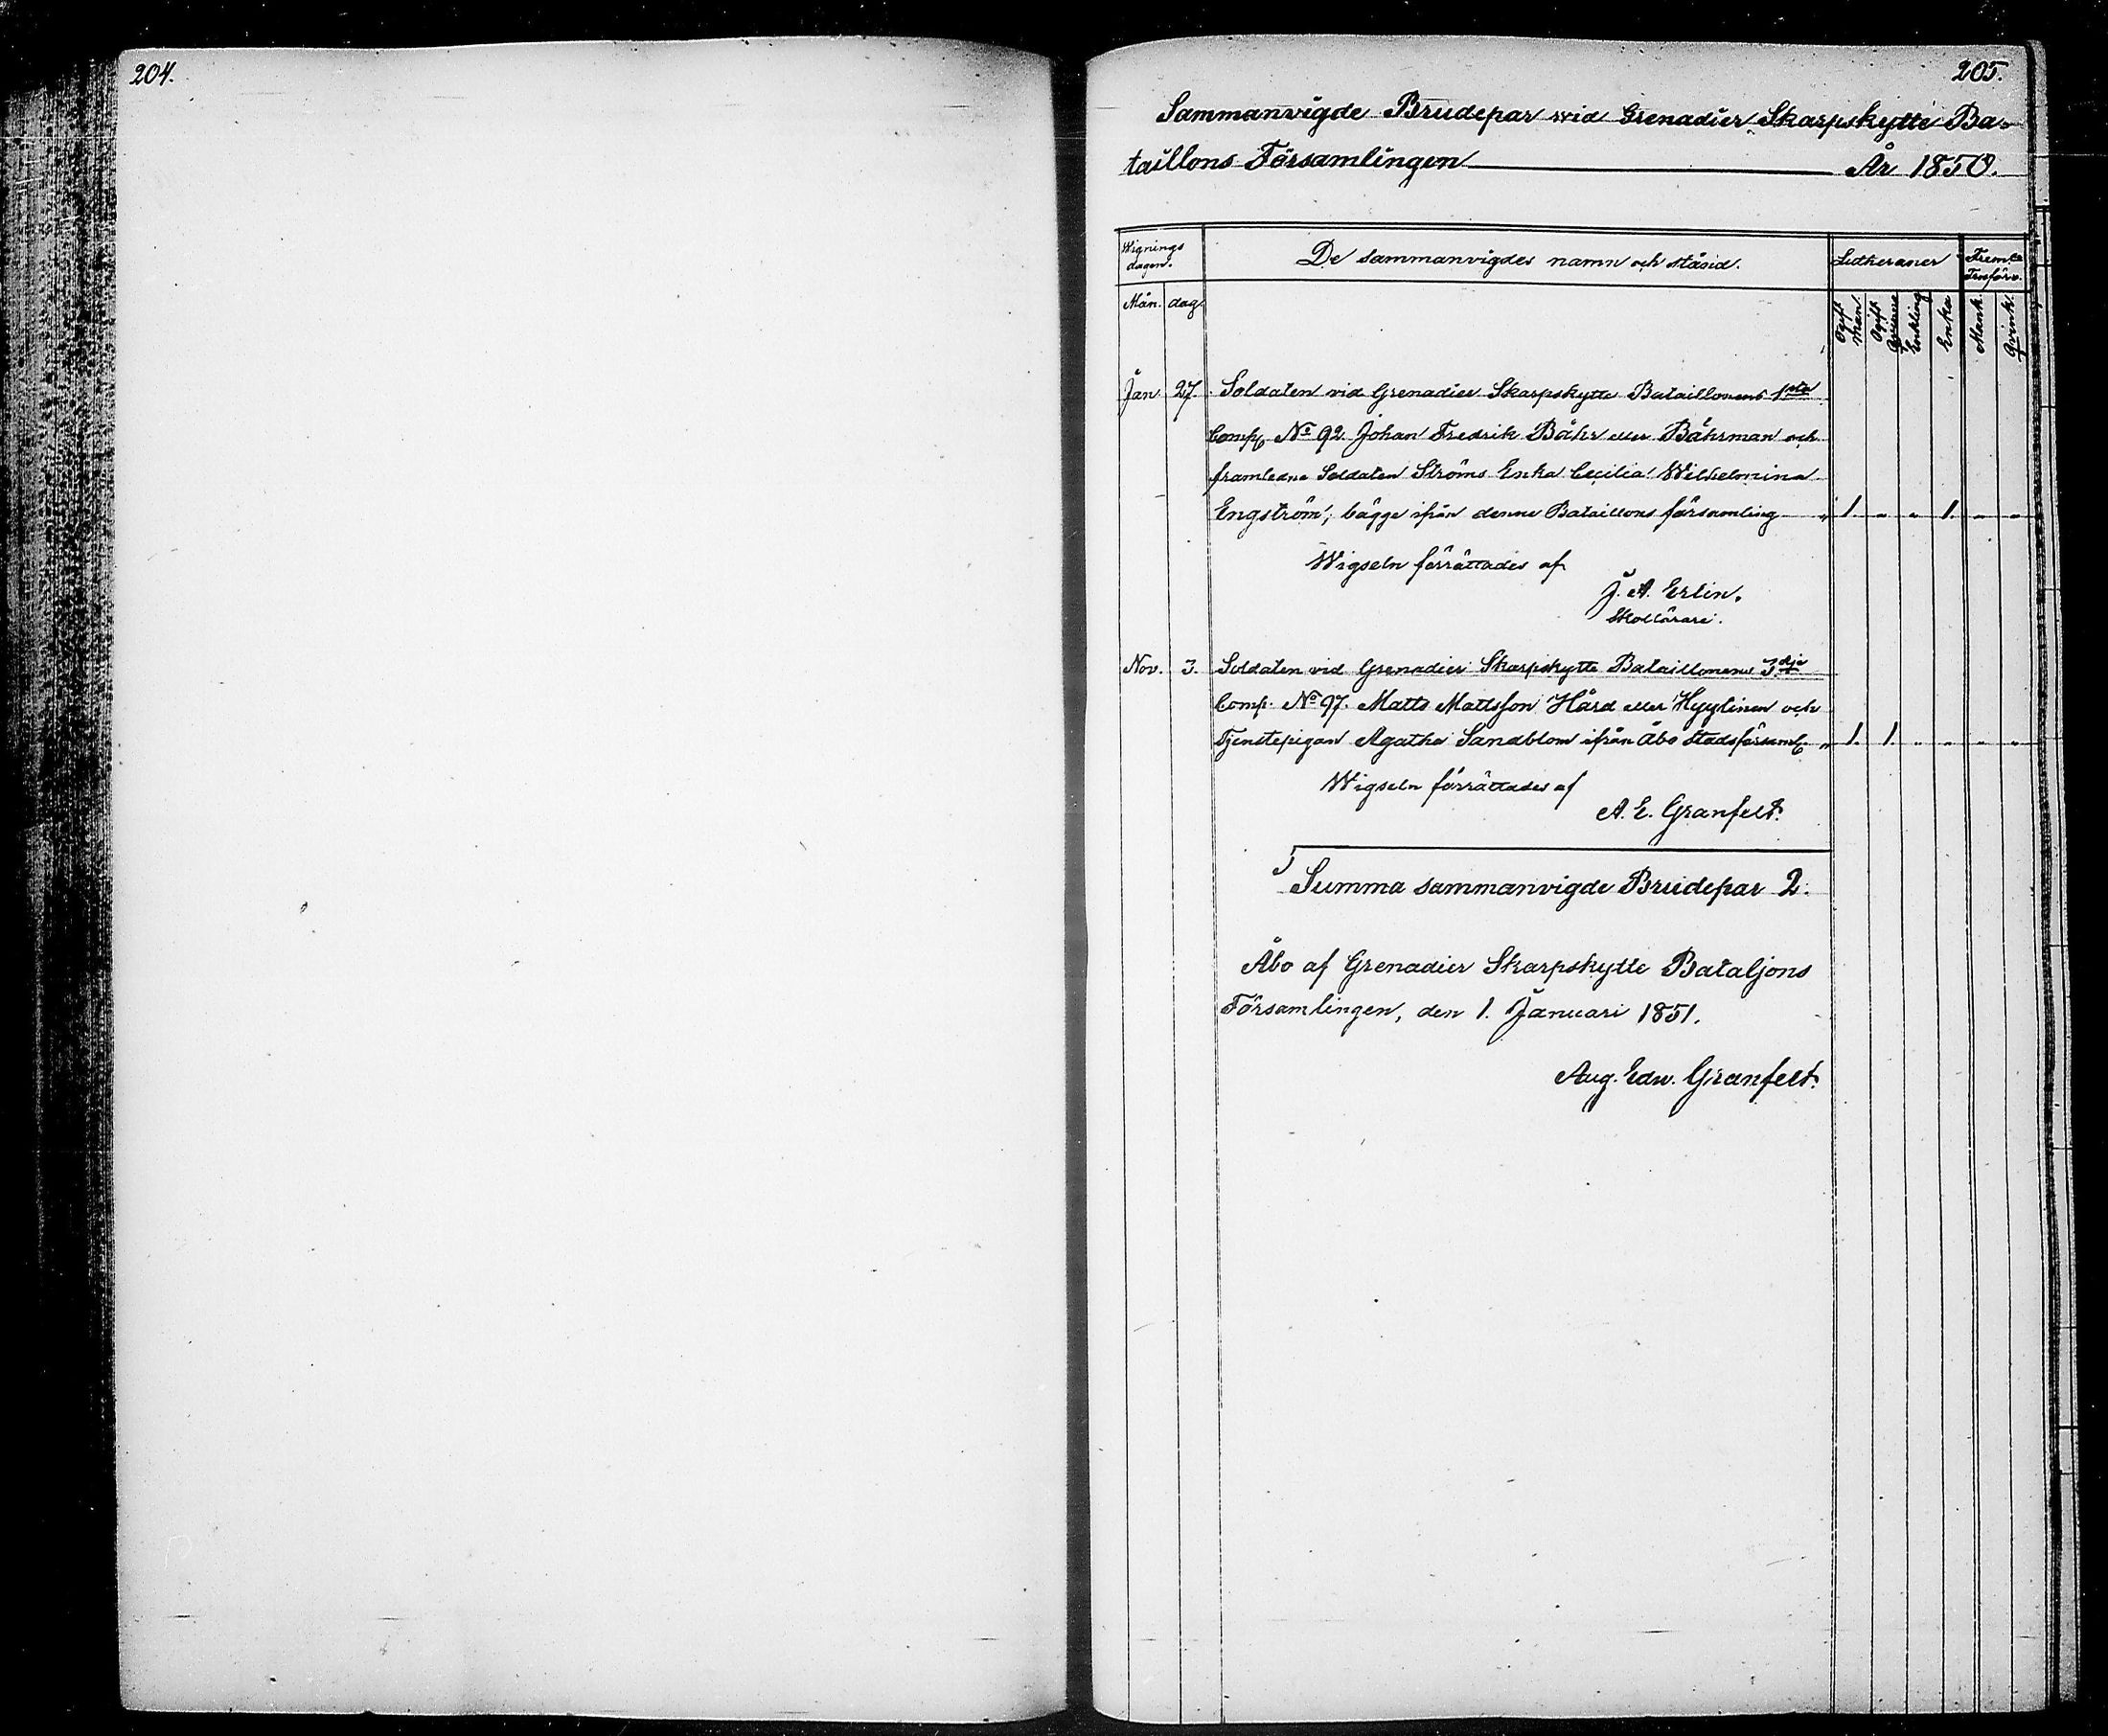 204.
205.
Sammanvigde Brudepar wid Grenadier Skarpskytte Ba-
taillons Församlingen År 1850.
Wignings De sammanvigdes namn och stånd. Lutheraner Fremde
dagen. Trosförv.
Mån. dag. Ogift Man. Ogift Qvinna Enkling Enka Mank. Qvink.
Jan. 27. Soldaten vid Grenadier Skarpskytte Bataillonens 1sta
Comp. No 92. Johan Fredrik Bähr eller Bährman och
framledne Soldaten Ströms Enka Cecilia Wilhelmina
Engström, bägge ifrån denne Bataillons församling " 1. " " 1. " "
Wigseln förrättades af
J. A. Erlin.
Skollärare.
Nov. 3. Soldaten vid Grenadier Skarpskytte Bataillonens 3dje
Comp. No 97. Matts Mattsson Hård eller Hyylinen och
Tjenstepigan Agatha Sandblom ifrån Åbo Stadsförsaml. " 1. 1. " " " "
Wigseln förrättades af
A. E. Granfelt.
Summa sammanvigde Brudepar 2.
Åbo af Grenadier Skarpskytte Bataljons
Församlingen, den 1. Januari 1851.
Aug. Edw. Granfelt.